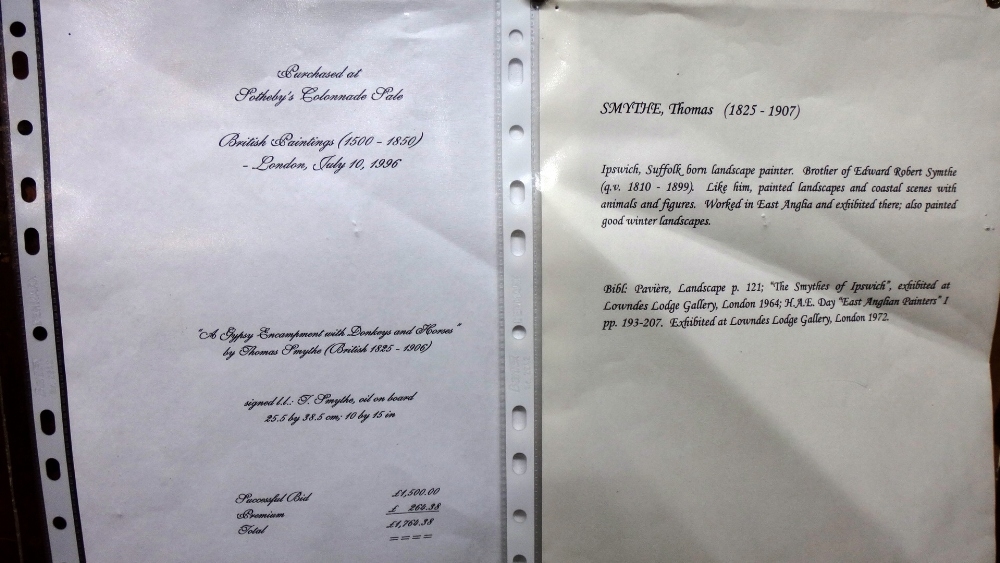 Purchased at
Sotheby's Colonnade Sale
British Paintings (1500 - 1850)
- London, July 10, 1996
"A Gypsy Encampment with Donkeys and Horses"
by Thomas Smythe (British 1825 - 1906)
signed l.l.: T. Smythe, oil on board
25.5 by 38.5 cm; 10 by 15 in
Successful Bid £1,500.00
Premium £ 264.38
Total £1,764.38
====
SMYTHE, Thomas (1825 - 1907)
Ipswich, Suffolk born landscape painter. Brother of Edward Robert Symthe
(q.v. 1810 - 1899). Like him, painted landscapes and coastal scenes with
animals and figures. Worked in East Anglia and exhibited there; also painted
good winter landscapes.
Bibl: Pavière, Landscape p. 121; "The Smythes of Ipswich", exhibited at
Lowndes Lodge Gallery, London 1964; H.A.E. Day "East Anglian Painters" I
pp. 193-207. Exhibited at Lowndes Lodge Gallery, London 1972.